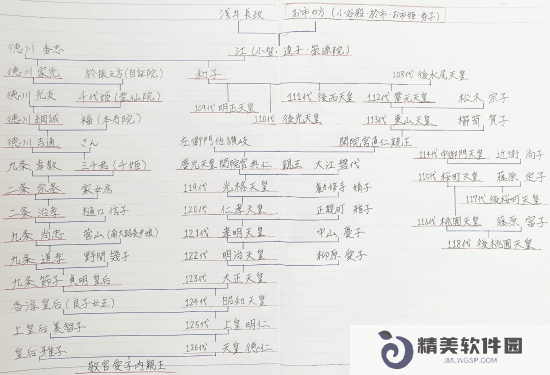 浅井長政 お市の方(小谷殿・於市・お市姫・秀子)
徳川 秀忠 江(小督・達子・崇源院)
徳川 家光 於振之方(自証院) 和子 108代 後水尾天皇
徳川 光友 千代姫(霊仙院) 109代 明正天皇 110代 後光天皇 111代 後西天皇 112代 霊元天皇 松木 宗子
徳川 綱誠 福(本寿院) 113代 東山天皇 櫛笥 賀子
徳川 吉通 さん 左衛門佐讃岐 閑院宮直仁親王
九条 幸教 三千君(千姫) 慶光天皇 閑院宮典仁 親王 大江 磐代 114代 中御門天皇 近衛 尚子
二条 宗基 家女房 119代 光格天皇 勧修寺 婧子 115代 桜町天皇 藤原 定子
二条 治孝 樋口 信子 120代 仁孝天皇 正親町 雅子 117代 後桜町天皇
九条 尚忠 菅山(南大路長尹娘) 121代 孝明天皇 中山 慶子 116代 桃園天皇 藤原 富子
九条 道孝 野間 幾子 122代 明治天皇 柳原 愛子 118代 後桃園天皇
九条 節子 貞明皇后 123代 大正天皇
香淳皇后(良子女王) 124代 昭和天皇
上皇后 美智子 125代 上皇 明仁
皇后 雅子 126代 天皇 徳仁
敬宮愛子内親王
精美软件园
JMLWGSP.WWW.COM